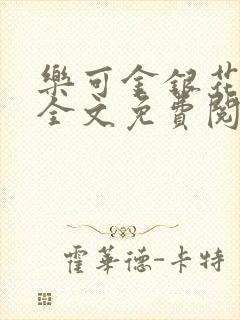 樂可金銀花
全文免費閱
霍華德-卡特